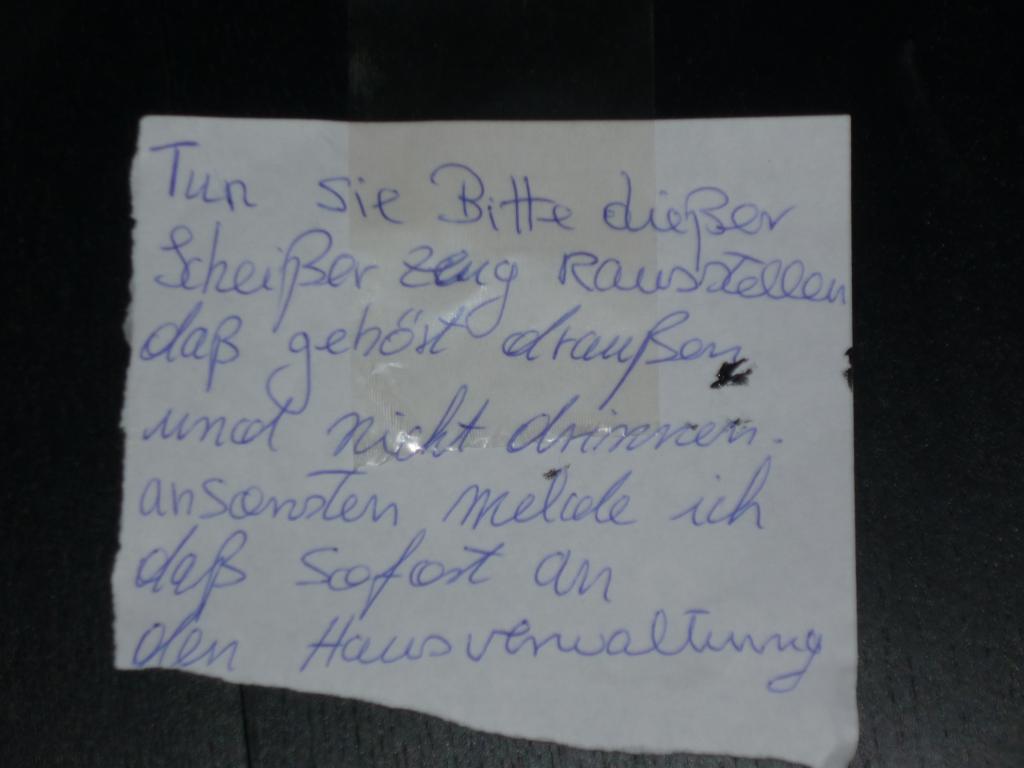 Tun sie Bitte dießer
Scheißer zeug Rausstellen
daß gehöst draußen
und nicht drinnen.
ansonsten melde ich
daß sofost an
den Hausverwaltung